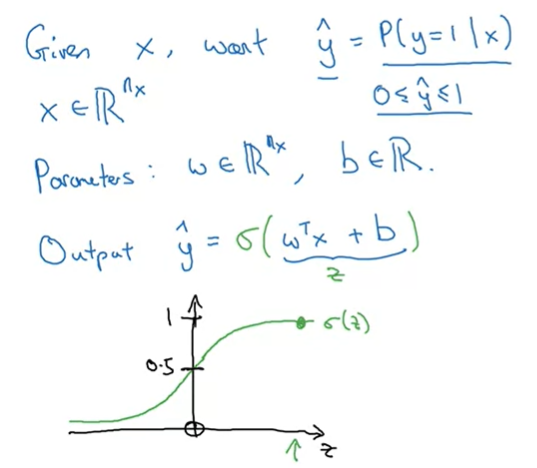 Given x, want ŷ = P(y=1|x)
x ∈ ℝ^{n_x}
0 ≤ ŷ ≤ 1
Parameters: w ∈ ℝ^{n_x}, b ∈ ℝ.
Output ŷ = σ(wᵀx + b)
z
1
σ(z)
0.5
z